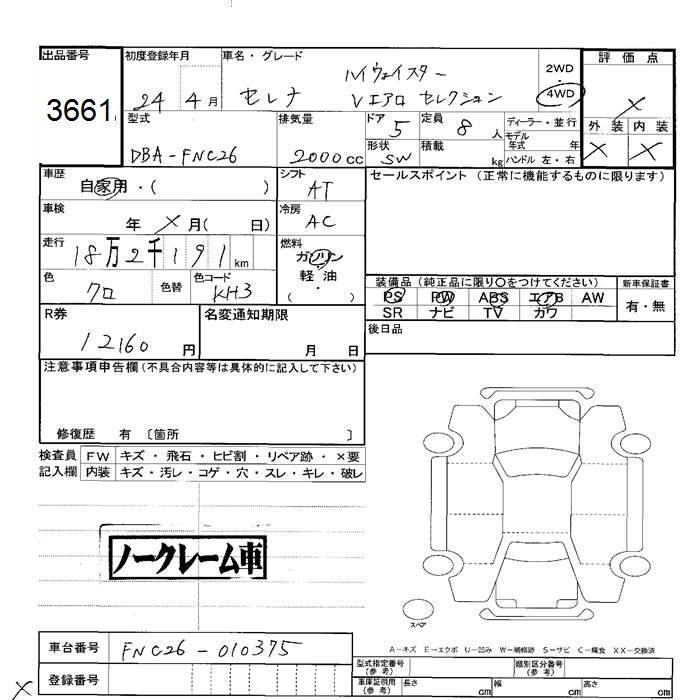 出品番号 初度登録年月 車名・グレード 2WD 評価点
3661 24 4月 セレナ ハイウェイスター ・
Vエアロ セレクション 4WD X
型式 排気量 ドア 5 定員 8人 ディーラー・並行 外装 内装
DBA-FNC26 2000cc 形状 SW 積載 kg モデル年式 年 X X
ハンドル 左・右
車歴 自家用・( ) シフト AT セールスポイント (正常に機能するものに限ります)
車検 年 X月( 日) 冷房 AC
走行 18万2千191km 燃料 ガソリン
色 クロ 色替 色コード KH3 軽油
・
( )
装備品 (純正品に限り〇をつけてください) 新車保証書
PS PW ABS エアB AW 有・無
SR ナビ TV カワ
R券 12160円 名変通知期限 月 日 後日品
注意事項申告欄(不具合内容等は具体的に記入して下さい)
修復歴 有 〔箇所 〕
検査員 FW キズ・飛石・ヒビ割・リペア跡・×要
記入欄 内装 キズ・汚レ・コゲ・穴・スレ・キレ・破レ
ノークレーム車
スペア
A-キズ E-エクボ U-凹み W-補修跡 S-サビ C-腐食 XX-交換済
車台番号 FNC26-010375
登録番号
型式指定番号(参考) 類別区分番号(参考)
車庫証明用(参考) 長さ cm 幅 cm 高さ cm
X